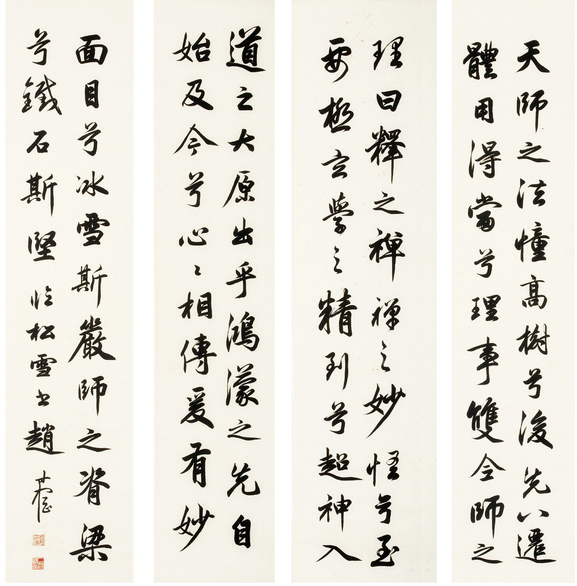 天師之法幢高樹兮後先遷
體用得當兮理事雙全師之
理曰釋之禪禪之妙兮至
要極玄學之精到兮超神入
道之大原出乎鴻濛之先自
始及今兮心〻相傳爰有妙
面目兮冰雪斯嚴師之脊梁
兮鐵石斯堅臨松雪書趙